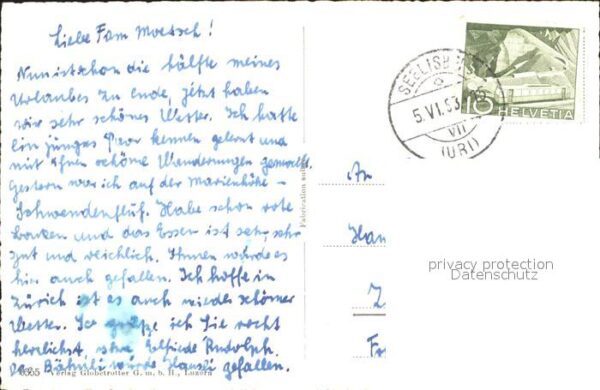 Liebe Fam Moetsch!
Nun ist schon die hälfte meines
Urlaubes zu ende, jetzt haben
wir sehr schönes Wetter. Ich hatte
ein junges Paar kennen gelernt und
mit ihnen schöne Wanderungen gemacht.
Gestern war ich auf der Marienhöhe -
Schwendenfluh. Habe schon rote
Backen und das Essen ist sehr, sehr
gut und reichlich. Ihnen würde es
hier auch gefallen. Ich hoffe in
Zürich ist es auch wieder schöner
Wetter. So grüße ich Sie recht
herzlichst Elfriede Rudolph.
Das Bähnli würde Hansli gefallen.
6355 Verlag Globetrotter G. m. b. H., Luzern
Fabrication suisse
SEELISBERG
5.VI.53
VII
(URI)
10
HELVETIA
An
Han
Z
Fr
privacy protection
Datenschutz